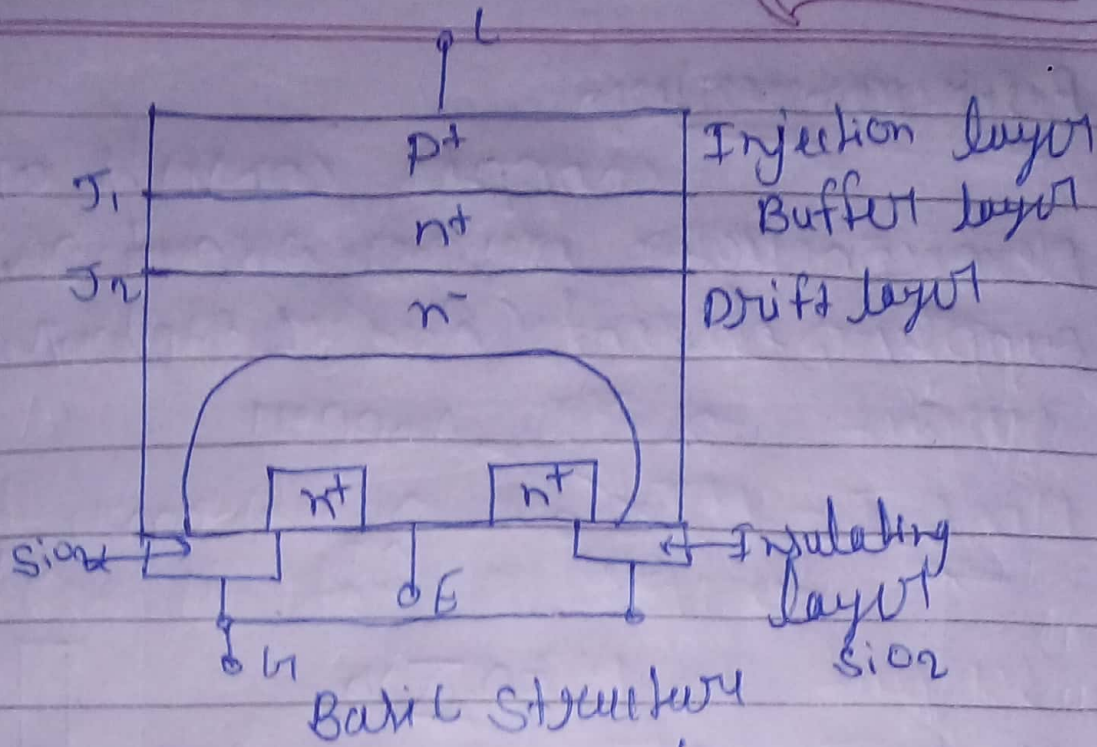 C
p+
Injection layer
J1
n+
Buffer layer
J2
n-
Drift layer
n+
n+
SiO2
Insulating
layer
SiO2
E
G
Basic Structure